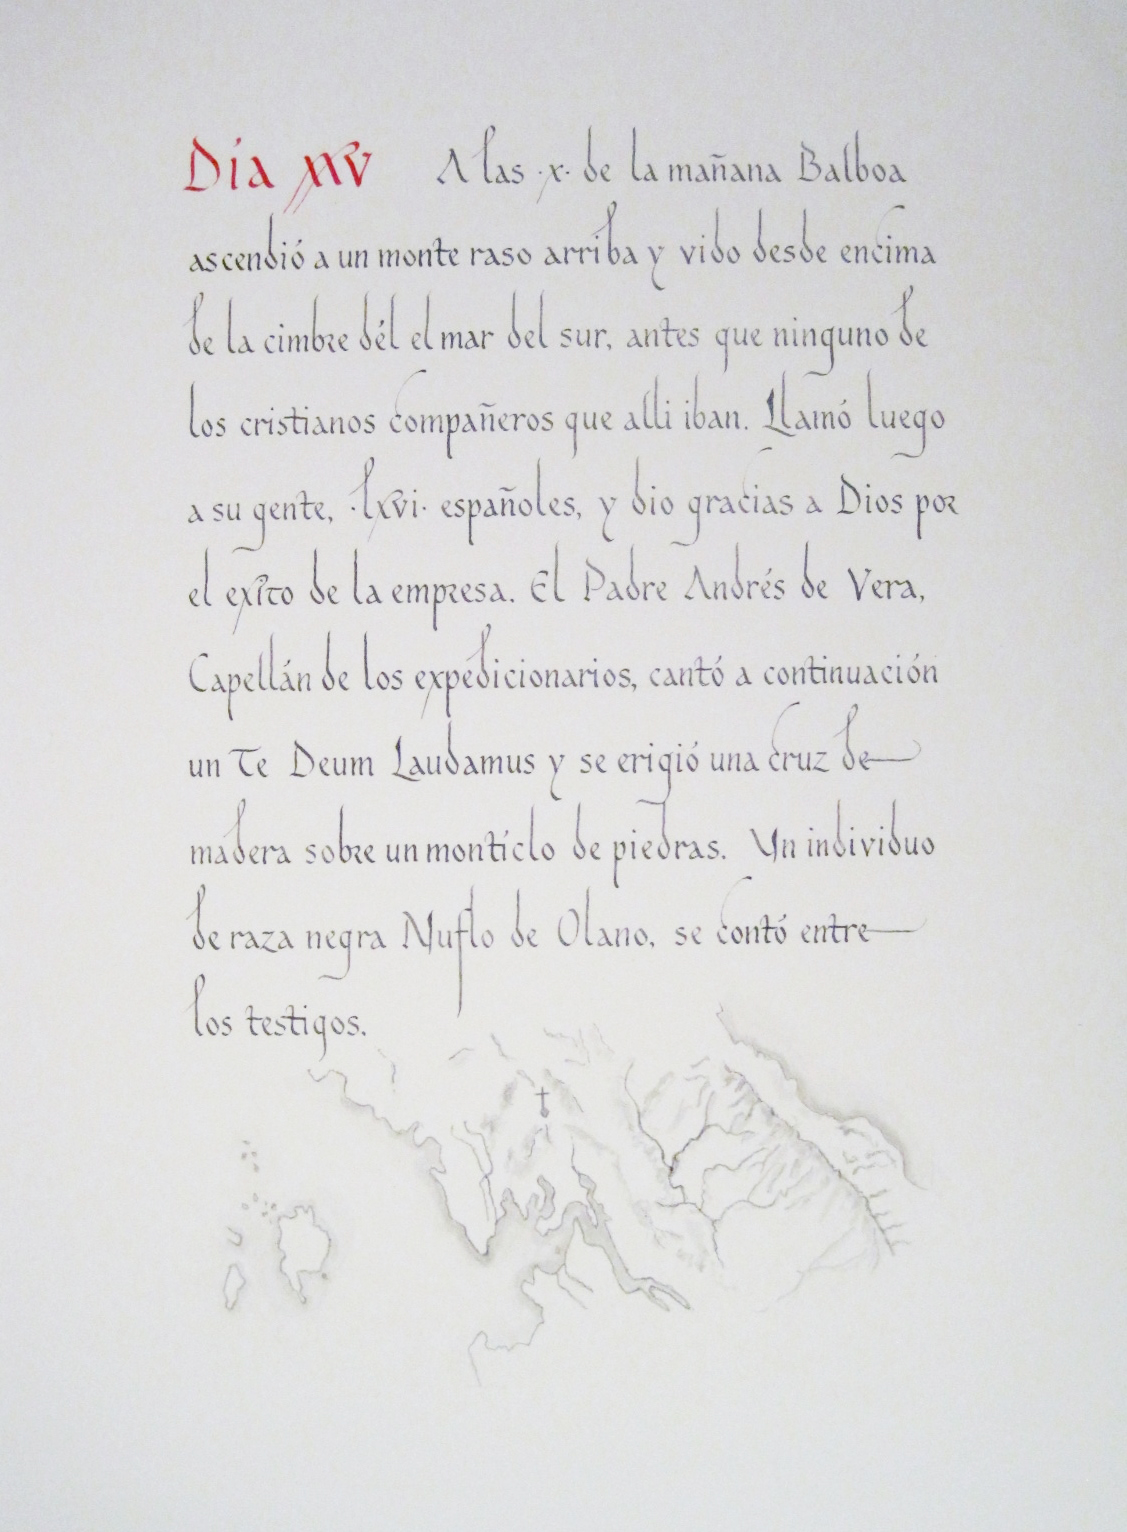 Día XXV A las ·x· de la mañana Balboa
ascendió a un monte raso arriba y vido desde encima
de la cimbre dél el mar del sur, antes que ninguno de
los cristianos compañeros que alli iban. Llamó luego
a su gente, ·lxvi· españoles, y dio gracias a Dios por
el exito de la empresa. El Padre Andrés de Vera,
Capellán de los expedicionarios, cantó a continuación
un Te Deum Laudamus y se erigió una cruz de
madera sobre un montíclo de piedras. Un individuo
de raza negra Nuflo de Olano, se contó entre
los testigos.